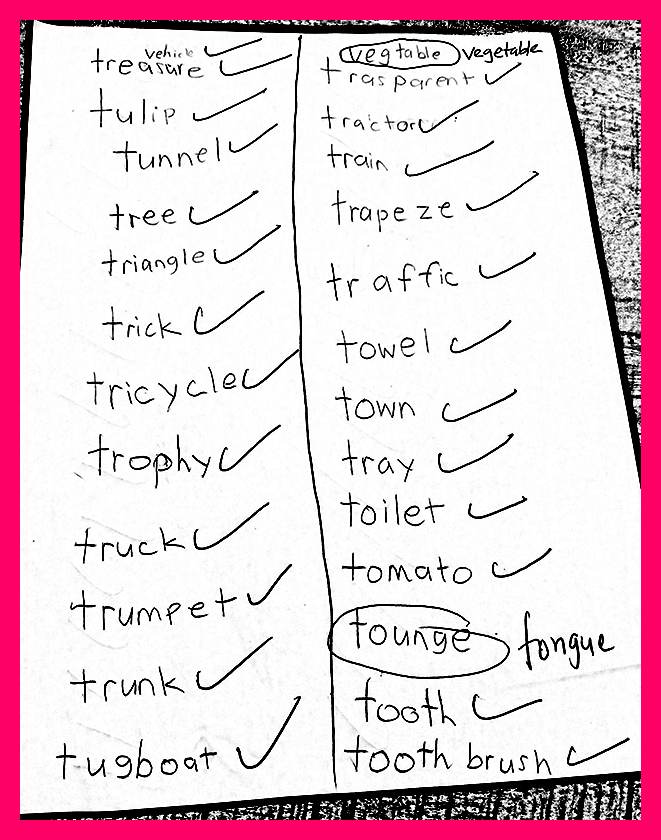 vehicle
treasure
tulip
tunnel
tree
triangle
trick
tricycle
trophy
truck
trumpet
trunk
tugboat
vegtable vegetable
trasparent
tractor
train
trapeze
traffic
towel
town
tray
toilet
tomato
tounge tongue
tooth
tooth brush